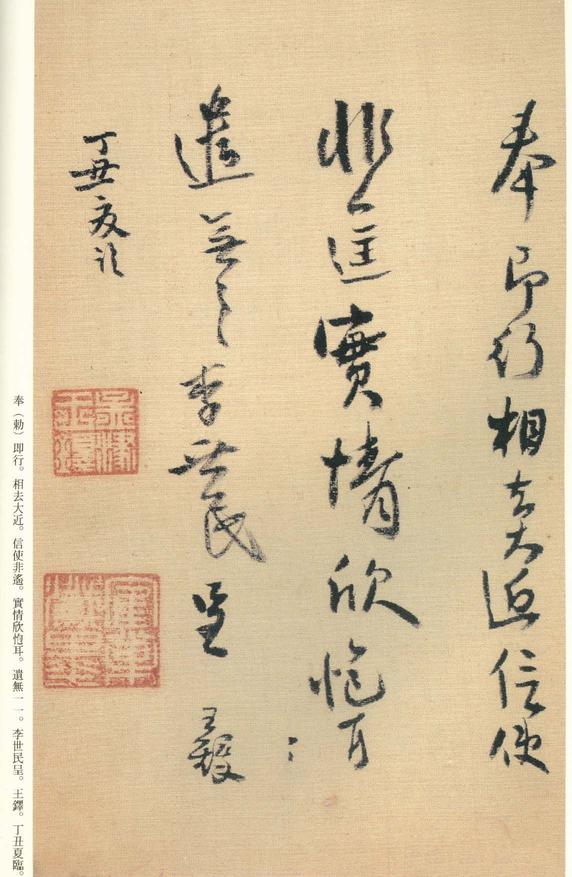 奉即行相去大近信使
非遥實情欣怉耳
遣無一一李世民呈 王鐸
丁丑夏臨
奉（勅）即行。相去大近。信使非遙。實情欣怉耳。遺無一一。李世民呈。王鐸。丁丑夏臨。